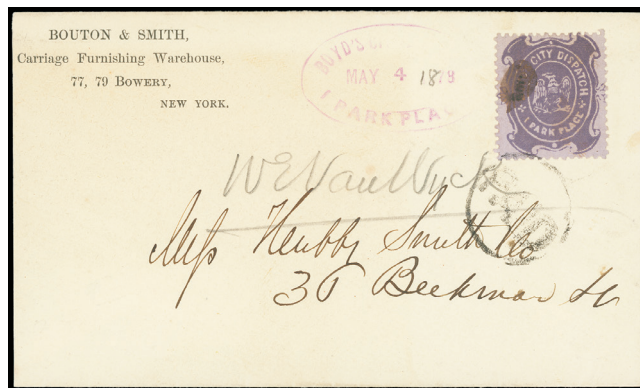 BOUTON & SMITH,
Carriage Furnishing Warehouse,
77, 79 BOWERY,
NEW YORK.
BOYD'S
MAY 4 1878
1 PARK PLA
CITY DISPATCH
1 PARK PLACE
W E Van Wyck
Mess Smith Co
36 Beekman St